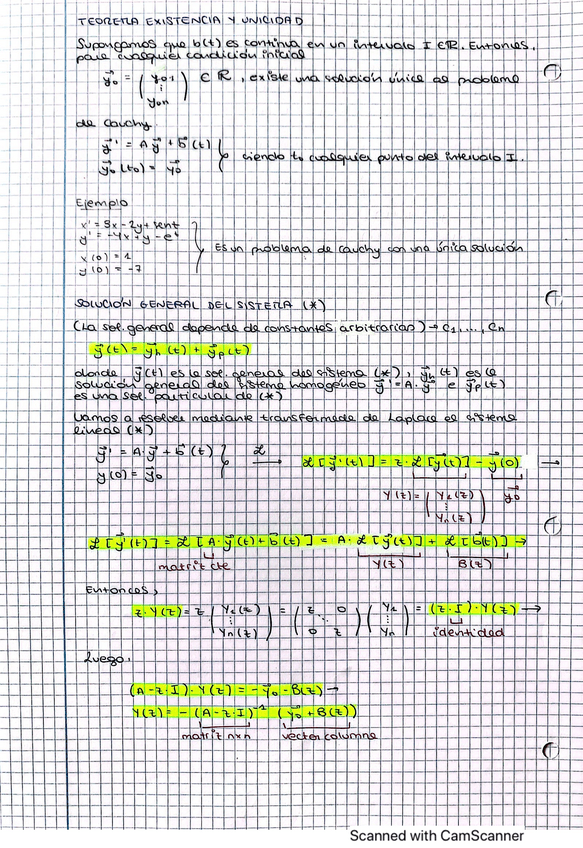 TEOREMA EXISTENCIA Y UNICIDAD
Supongamos que b(t) es continua en un intervalo I ∈ ℝ. Entonces,
para cualquier condición inicial
y⃗₀ = (y₀₁ ⋮ y₀ₙ) ∈ ℝ, existe una solución única al problema
de Cauchy.
y⃗' = A y⃗ + b⃗(t)
y⃗₀(t₀) = y⃗₀ } siendo t₀ cualquier punto del intervalo I.
Ejemplo
x' = 3x - 2y + sent
y' = -4x + y - eᵗ
x(0) = 1
y(0) = -7
} Es un problema de cauchy con una única solución
SOLUCIÓN GENERAL DEL SISTEMA (*)
(La sol. general depende de constantes arbitrarias) → c₁, ..., cₙ
y⃗(t) = y⃗ₕ(t) + y⃗ₚ(t)
donde y⃗(t) es la sol. general del sistema (*), y⃗ₕ(t) es la
solución general del sistema homogéneo y⃗' = A·y⃗ e y⃗ₚ(t)
es una sol. particular de (*)
Vamos a resolver mediante transformada de Laplace el sistema
lineal (*)
y⃗' = A·y⃗ + b⃗(t)
y(0) = y⃗₀ } ℒ → ℒ[y⃗'(t)] = z·ℒ[y⃗(t)] - y⃗(0) →
Y(z) = (Y₁(z) ⋮ Yₙ(z)) y⃗₀
ℒ[y⃗'(t)] = ℒ[A·y⃗(t) + b⃗(t)] = A·ℒ[y⃗(t)] + ℒ[b⃗(t)] →
matriz cte Y(z) B(z)
Entonces,
z·Y(z) = z (Y₁(z) ⋮ Yₙ(z)) = (z 0 ⋱ 0 z) (Y₁ ⋮ Yₙ) = (z·I)·Y(z) →
identidad
Luego,
(A - z·I)·Y(z) = -y⃗₀ - B(z) →
Y(z) = -(A - z·I)⁻¹ (y⃗₀ + B(z))
matriz nxn vector columna
Scanned with CamScanner